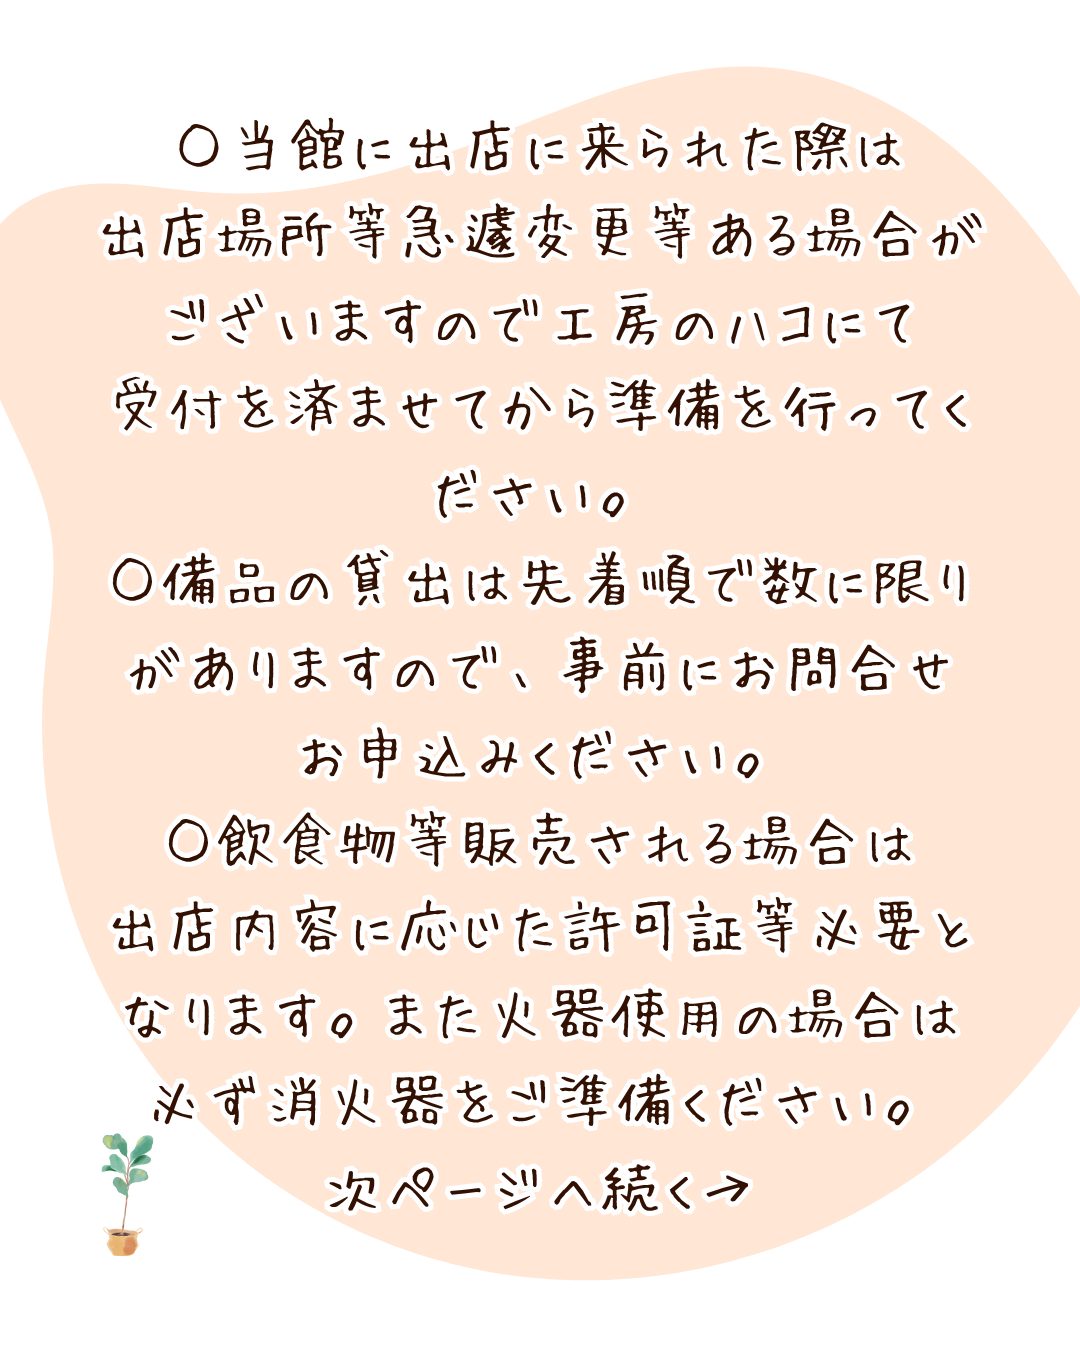 〇当館に出店に来られた際は
出店場所等急遽変更等ある場合が
ございますので工房のハコにて
受付を済ませてから準備を行ってく
ださい。
〇備品の貸出は先着順で数に限り
がありますので、事前にお問合せ
お申込みください。
〇飲食物等販売される場合は
出店内容に応じた許可証等必要と
なります。また火器使用の場合は
必ず消火器をご準備ください。
次ページへ続く→